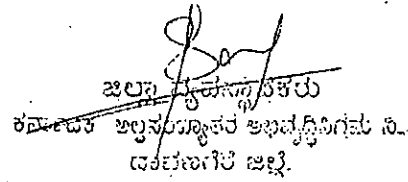 ಜಿಲ್ಲಾ ವ್ಯವಸ್ಥಾಪಕರು
ಕರ್ನಾಟಕ ಅಲ್ಪಸಂಖ್ಯಾತರ ಅಭಿವೃದ್ಧಿ ನಿಗಮ ನಿ.,
ದಾವಣಗೆರೆ ಜಿಲ್ಲೆ.